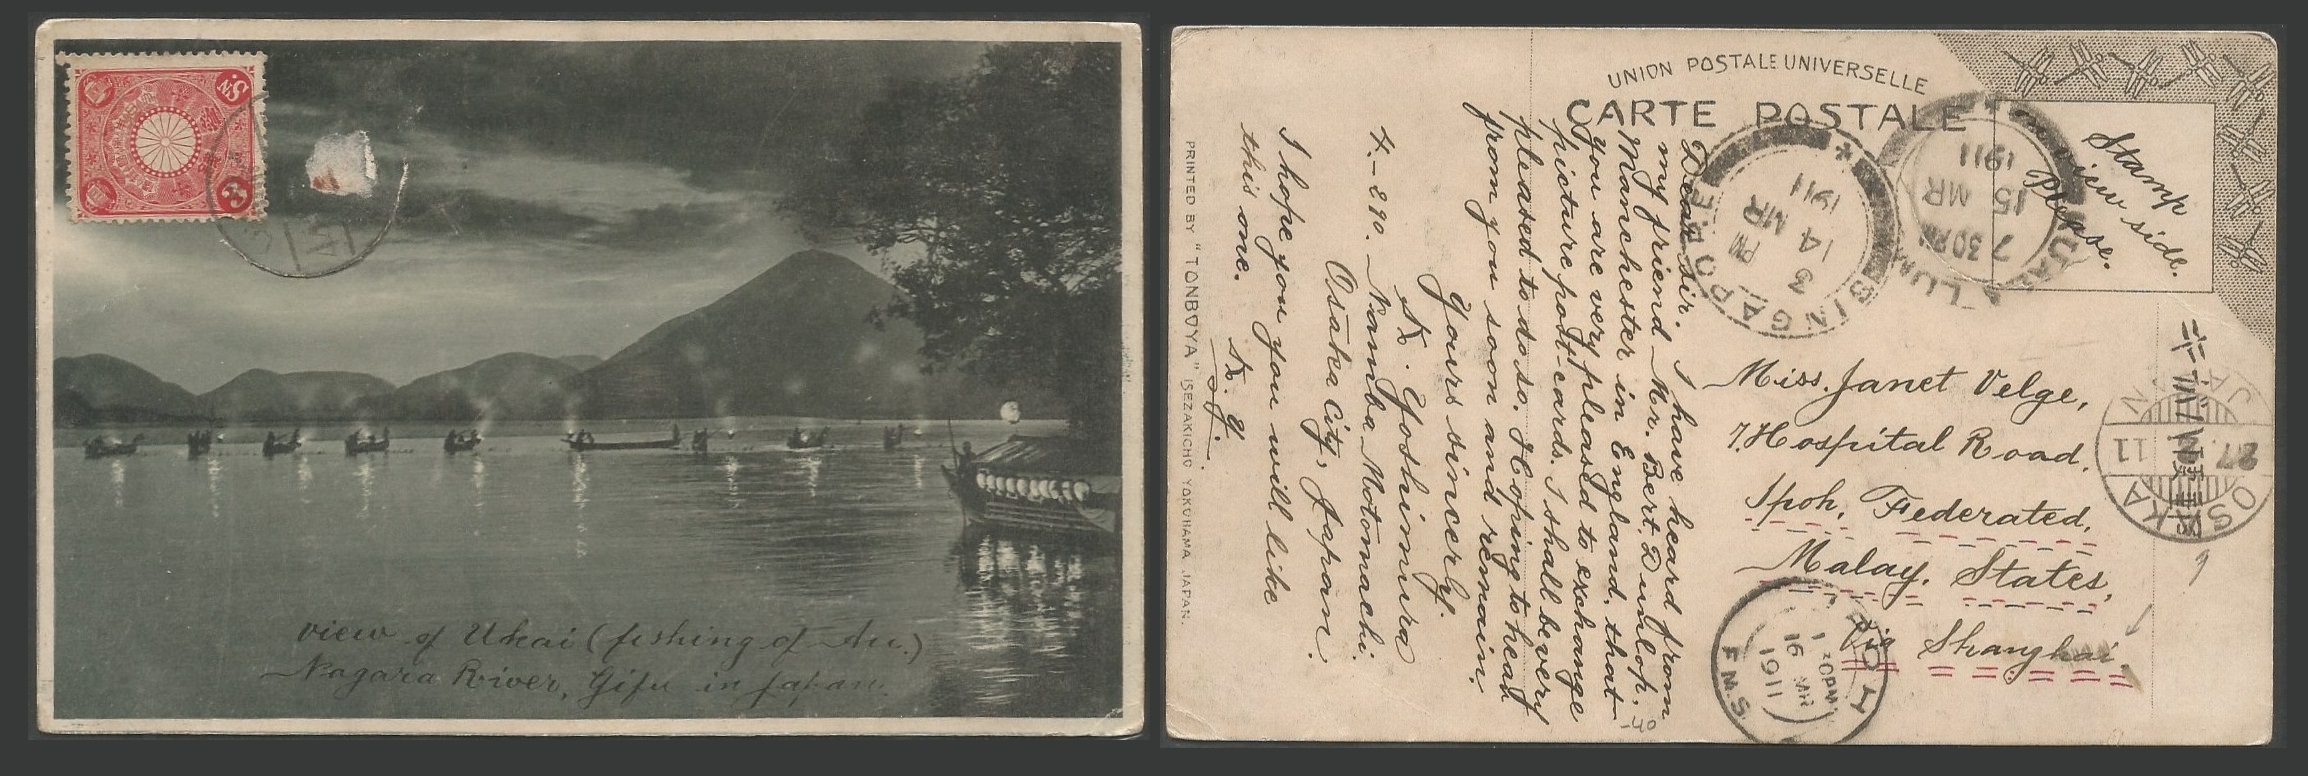 Sn.
3
view of Ukai (fishing of Au.)
Nagara River, Gifu in Japan.
UNION POSTALE UNIVERSELLE
CARTE POSTALE
Stamp
view side.
Please.
PRINTED BY "TONBOYA" ISEZAKICHO YOKOHAMA, JAPAN.
Dear sir. I have heard from
my friend Mr. Bert. Dunlop.
Manchester in England, that
you are very pleased to exchange
picture post-cards. I shall be very
pleased to do so. Hoping to hear
from you soon and remain.
Yours sincerly.
K. Yoshimura
4.-290. Namba Motomachi.
Osaka City, Japan.
I hope you you will like
this one. K. Y.
Miss. Janet Velge,
7. Hospital Road,
Ipoh, Federated,
Malay. States,
Via Shanghai.
SINGAPORE
3 PM
14 MR
1911
7 30PM
15 MR
1911
IPOH
1 30PM
16 MR
1911
F.M.S.
OSAKA
27. 11
JAPAN